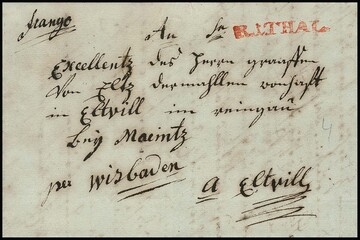 franco
An Sr R.I.THAL
Excellentz des Herrn graaffen
Von Eltz dermahllen vonhafft
in Eltvill im reingau
bey Maeintz
per Wisbaden
a Eltvill